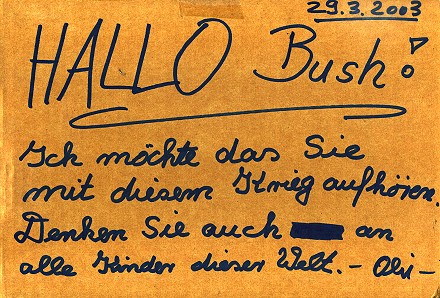 29.3.2003
HALLO Bush!
Ich möchte das Sie
mit diesem Krieg aufhören.
Denken Sie auch an
alle Kinder dieser Welt. –